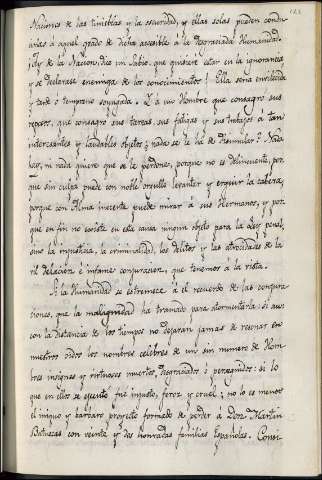 123
Naciones de las tinieblas y la oscuridad, y ellas solas pueden condu-
cirlas à aquel grado de dicha accesible à la desgraciada Humanidad.
¡Ay de la Nacion, dice un Sabio, que quisiere estar en la ignorancia
y se declarase enemiga de los conocimientos! Ella seria envilecida
y tarde o temprano soyugada. Y à un Hombre que consagró sus
reposos, que consagró sus tareas, sus fatigas y sus trabajos à tan
interesantes y laudables objetos, nada se le ha de disimular? Nada
hay, ni nada quiere que se le perdone, porque no es delinquente, por
que sin culpa puede con noble orgullo levantar y erguir la cabeza,
porque con Alma inocente puede mirar à sus Hermanos, y por
que en fin no existe en esta causa ningun objeto para la accion penal,
sino la injusticia, la criminalidad, los delitos y las atrocidades de la
vil delacion è infame conjuracion, que tenemos à la vista.
Si la Humanidad se estremece à el recuerdo de las conjura-
ciones, que la malignidad ha tramado para atormentarla: si aun
con la distancia de los tiempos no dejaran jamas de resonar en
nuestros oidos los nombres celebres de un sin numero de Hom-
bres insignes y virtuosos muertos, desgraciados i perseguidos: si lo
que en ellos se ejecutó fué injusto, feroz y cruel; no lo es menos
el iniquo y barbaro proyecto formado de perder à Don Martin
Batuecas con veinte y dos honradas familias Españolas. Consi-